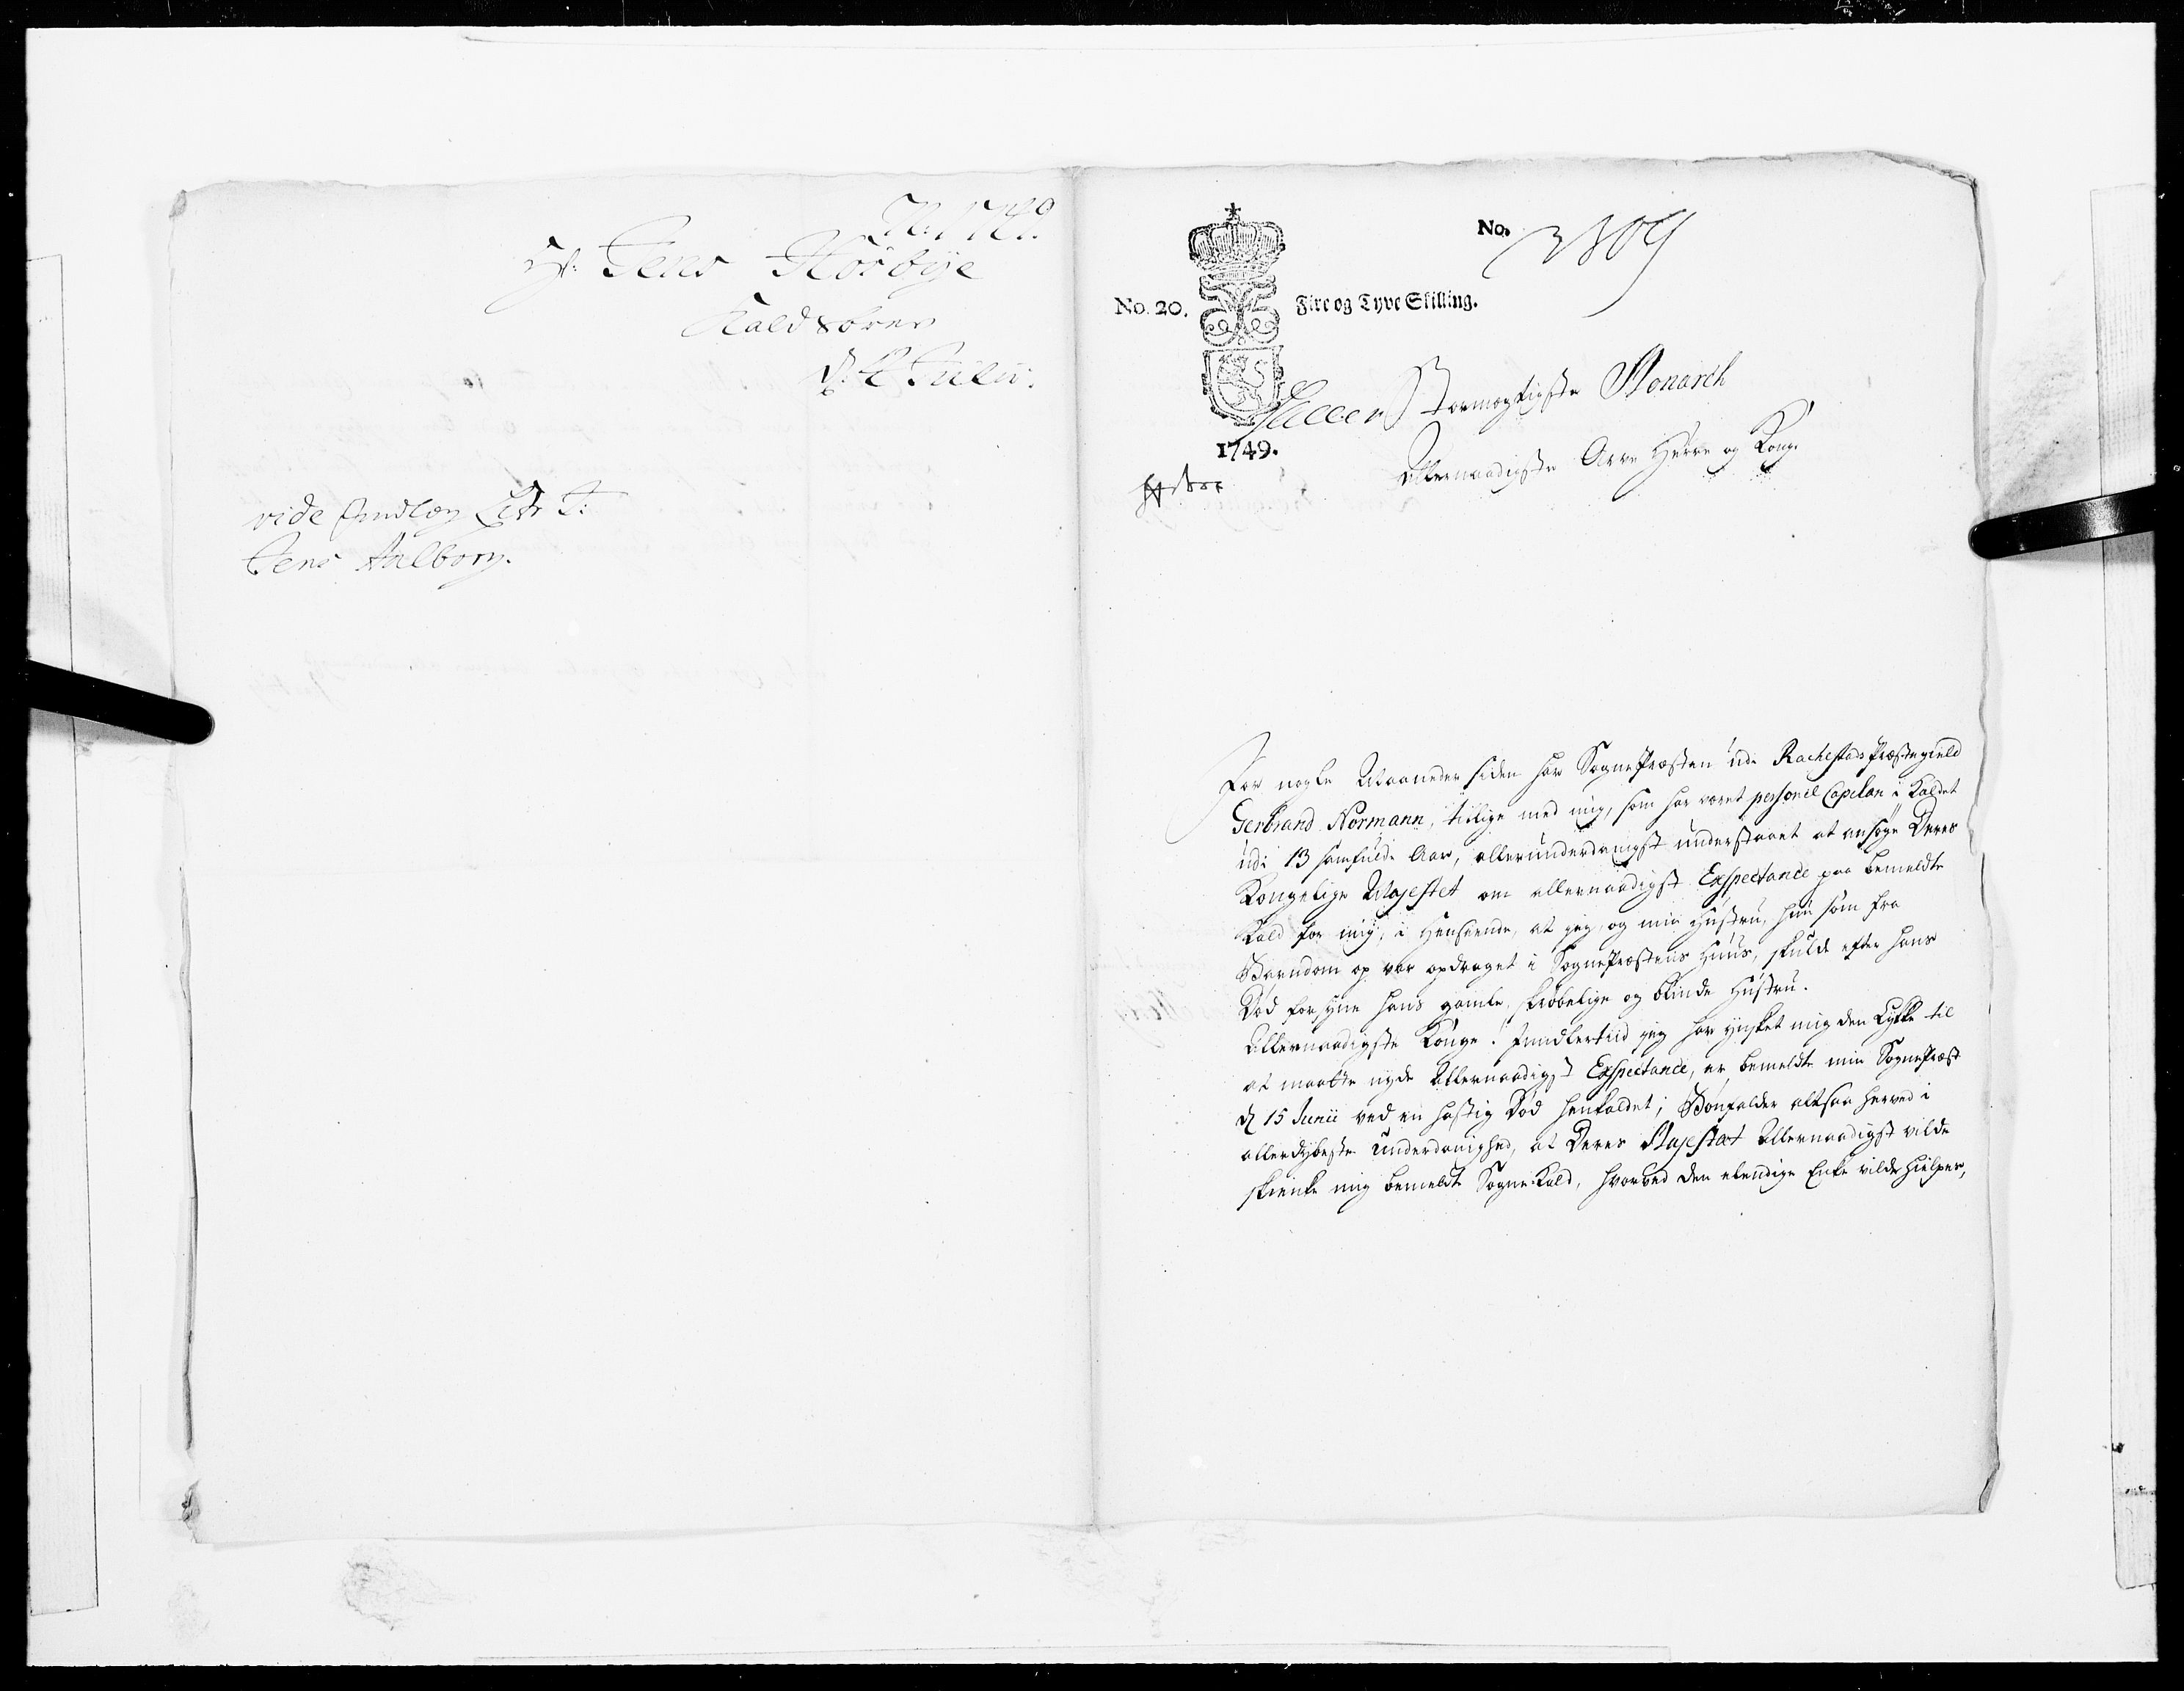 No. 1749.
Hr: Jens Hörbye
Kald sbrev
d: 4 Julii.
vide Indlæg Litr J:
Jens Aalborg.
No. 3809
No. 20. Fire og Tyve Skilling.
1749.
Stormægtigste Monarch
Allernaadigste Arve Herre og Konge
For nogle Maaneder siden har SognePræsten udi Rachestads Præstegield
Gerbrand Normann, tillige med mig, som har været personel Capelan i Kaldet
udi 13 samfulde Aar, allerunderdanigst understaaet at ansøge Deres
Kongelige Majestet om allernaadigst Exspectance paa bemeldte
Kald for mig, i Henseende, at jeg, og min Hustru, hun som fra
Barndom op var opdraget i SognePræstens Huus, skulde efter hans
Død forsyne hans gamle, skrøbelige og blinde Hustru.
Allernaadigste Konge! Imidlertiid jeg har ynsket mig den Lykke til
at maatte nyde Allernaadigst Exspectance, er bemeldte min SognePræst
d 15 Junii ved en hastig Død henkaldet; Bønfalder altsaa herved i
allerdybeste Underdanighed, at Deres Majestæt Allernaadigst vilde
skienke mig bemeldte Sogne-Kald, hvorved den elendige Enke vilde hielpes,